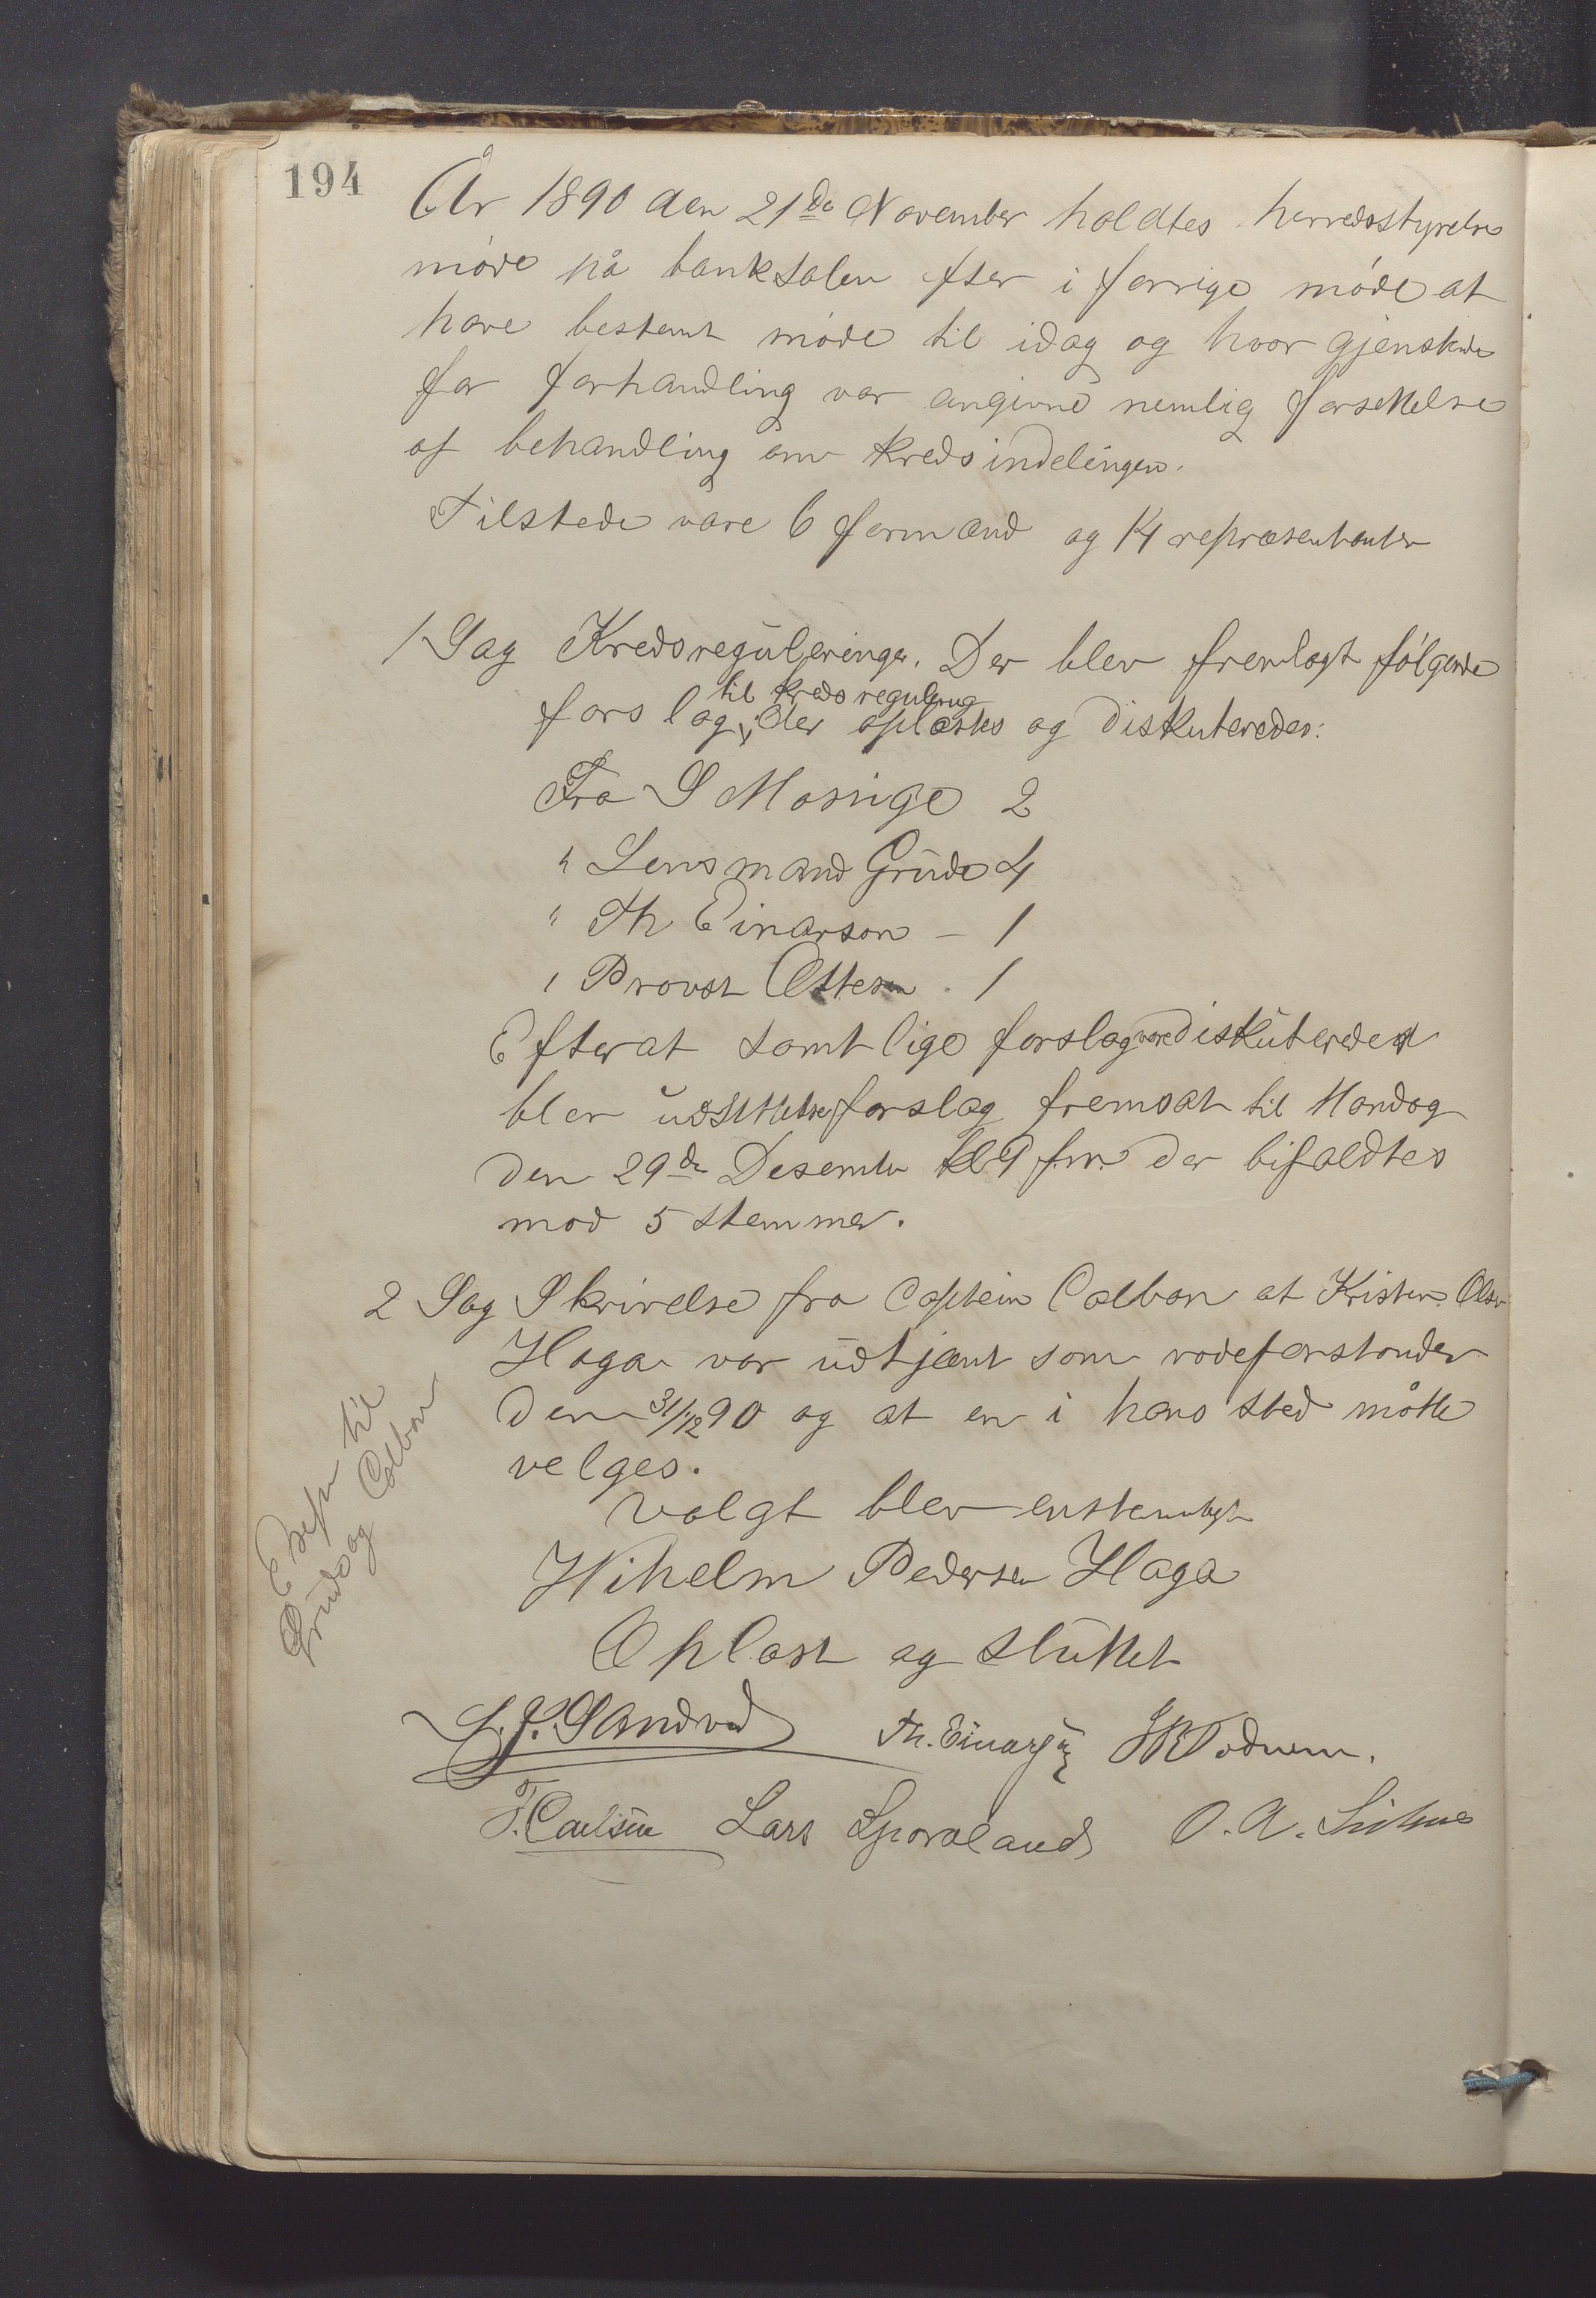 194
År 1890 den 21de November holdtes herredsstyrelse
møde på banksalen efter i forrige møde at
have bestemt møde til idag og hvor gjenstande
for forhandling var angivne nemlig forsettelse
af behandling om kredsindelingen.
Tilstede vare 6 formænd og 14 repræsentanter
1 Sag Kredsreguleringen. Der blev fremlagt følgende
til kredsregulering
forslag, der oplæstes og diskuteredes:
Fra S Mossige 2
" Lensmand Grude 4
" Th Einarson – 1
" Provst Ottesen . 1
Efterat samtlige forslag vare diskuterede
blev udsættelsesforslag fremsat til Mandag
den 29de Desember kl 9 f.m. der bifaldtes
mod 5 stemmer.
2 Sag Skrivelse fra Captein Colban at Kristen Olsen
Haga var udtjent som rodeforstander
den 31/12 90 og at en i hans sted måtte
velges.
Valgt blev enstemmigt
Wihelm Pedersen Haga
Oplæst og sluttet
Exspn til
Grude og Colban
L. J. Sandved Th. Einarsen
T. Carlsen Lars Sporaland O. A.